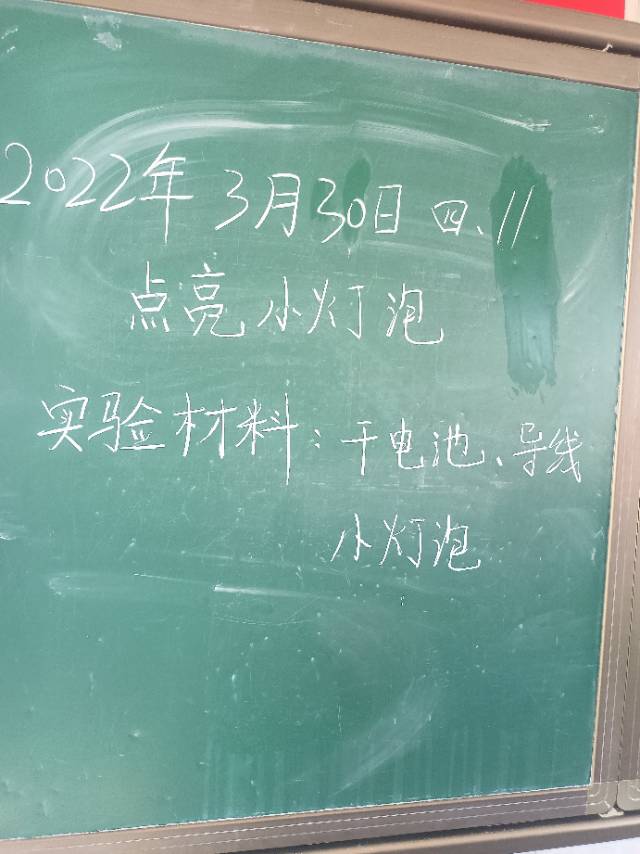 2022年3月30日 四、11
点亮小灯泡
实验材料：干电池、导线
小灯泡